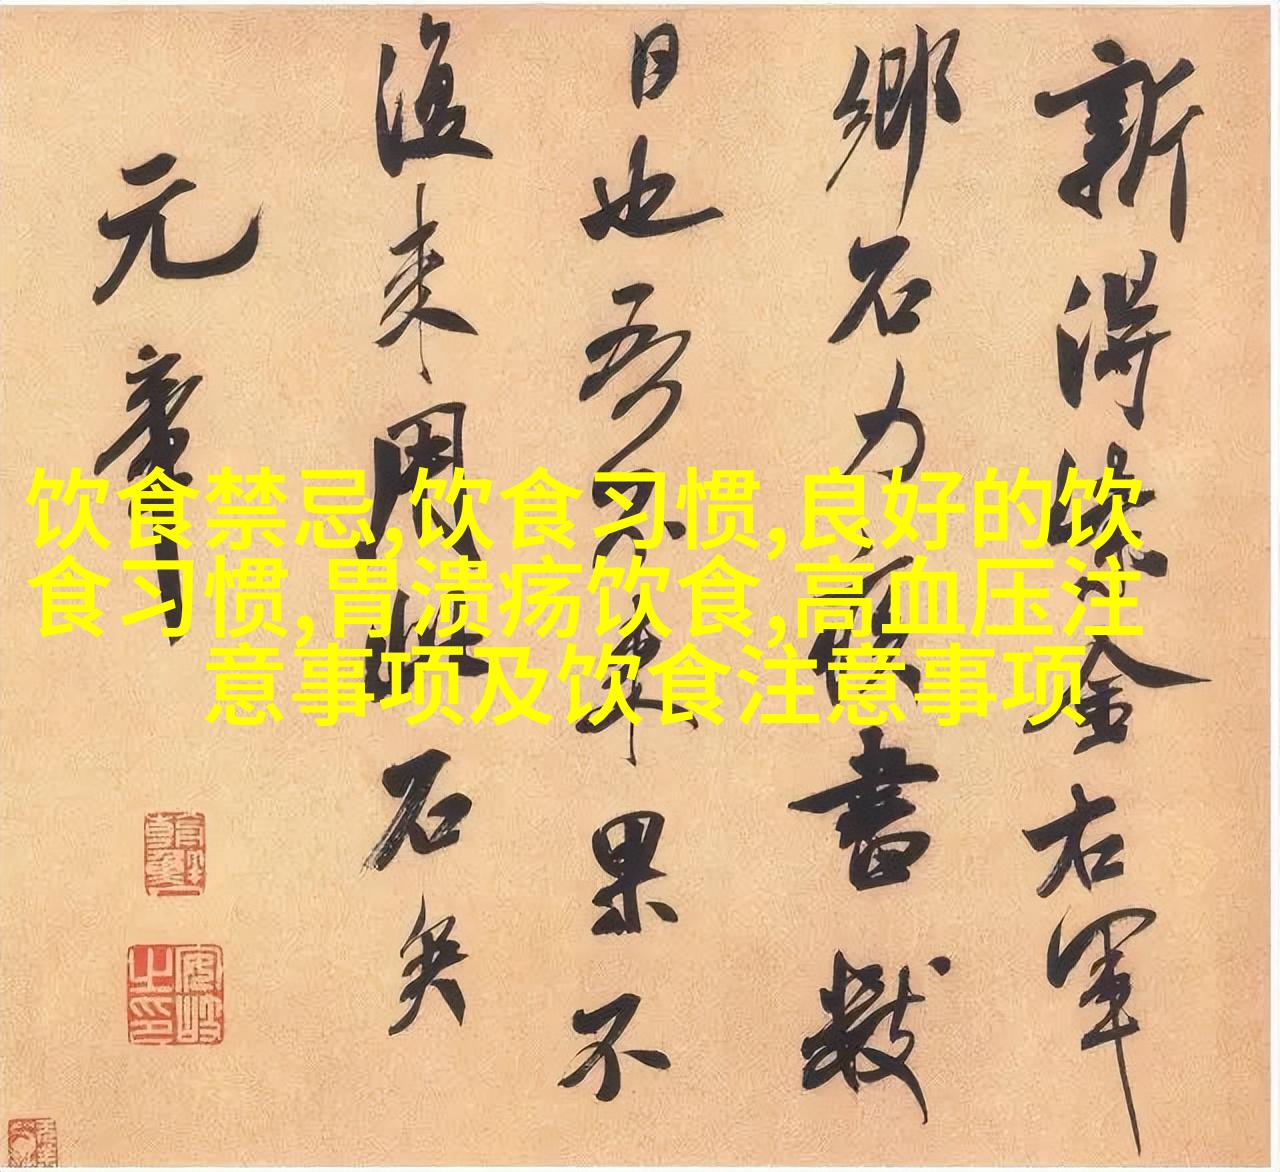 新得紫金右軍
鄉石力疾書數
日也吾不来果不
復来用此石矣
元章
饮食禁忌,饮食习惯,良好的饮
食习惯,胃溃疡饮食,高血压注
意事项及饮食注意事项